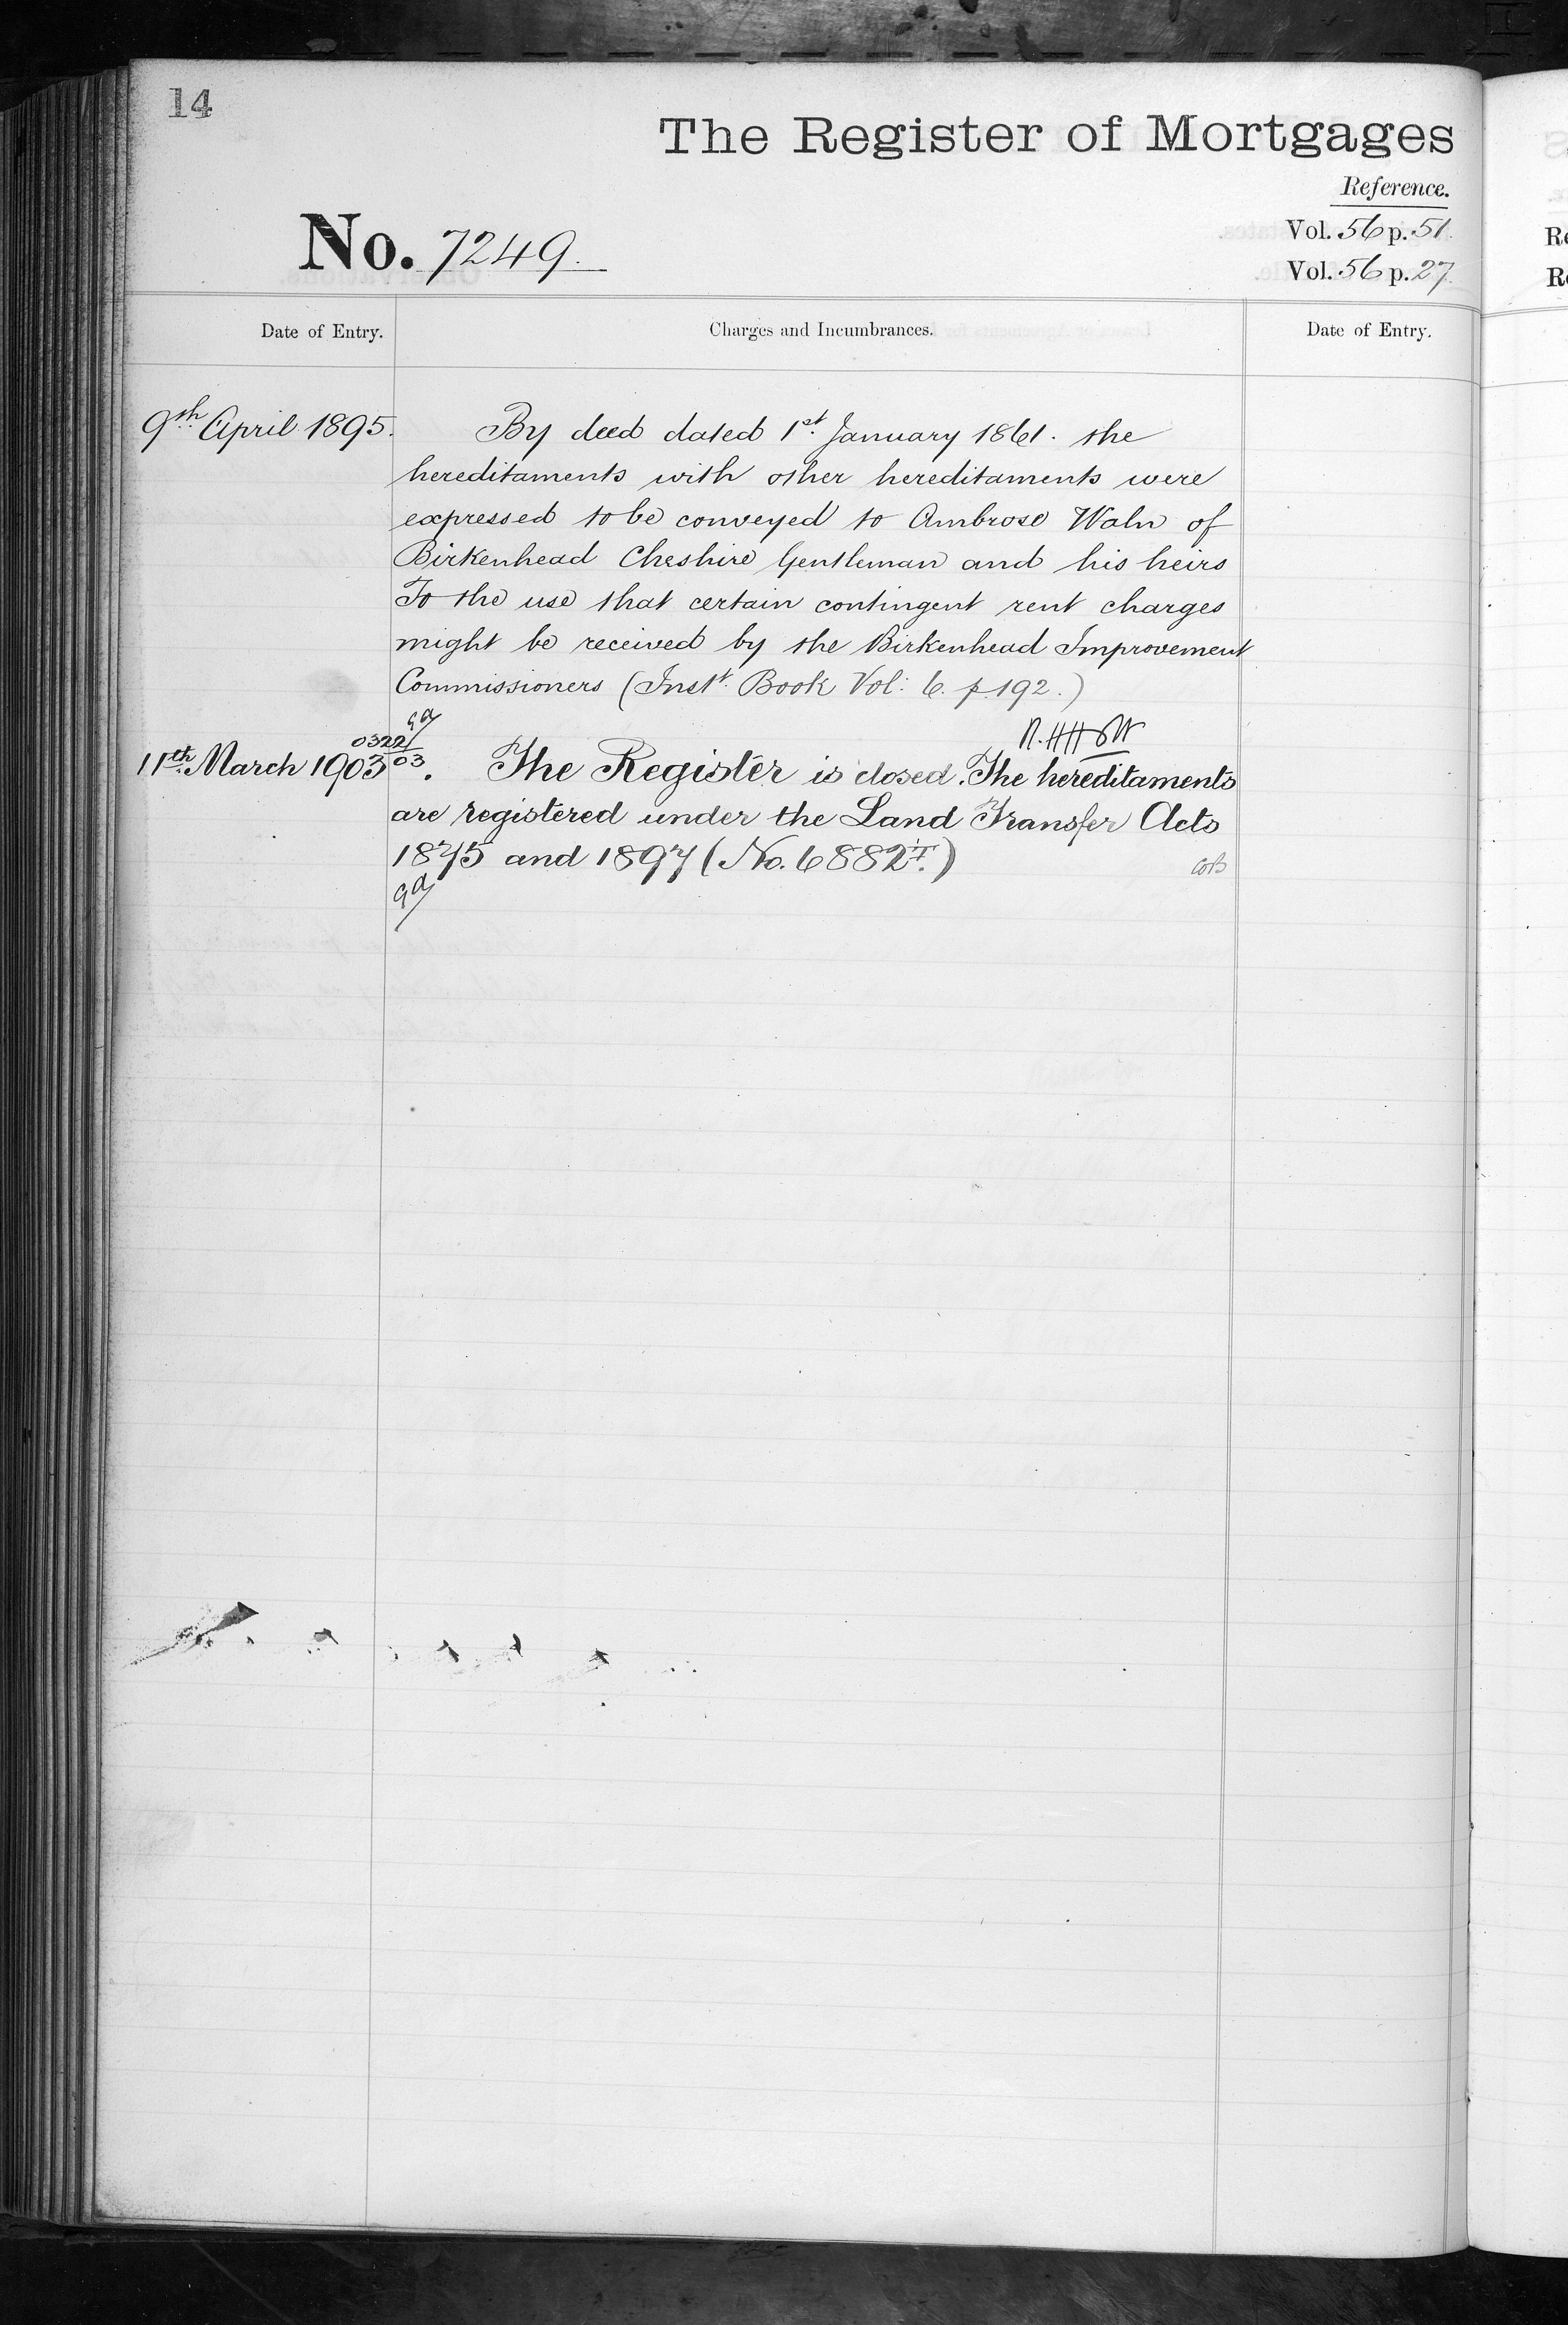 14
The Register of Mortgages
Reference.
No. 7249.
Vol. 56 p. 51.
Vol. 56 p. 27
Date of Entry.
Charges and Incumbrances.
Date of Entry.
9th April 1895.
By deed dated 1st January 1861. the
hereditaments with other hereditaments were
expressed to be conveyed to Ambrose Waln of
Birkenhead Cheshire Gentleman and his heirs
To the use that certain contingent rent charges
might be received by the Birkenhead Improvement
Commissioners (Inst. Book Vol: 6. p. 192.)
11th March 1903
0322/03.
The Register is closed. The hereditaments
are registered under the Land Transfer Acts
1875 and 1897 (No. 6882T.)